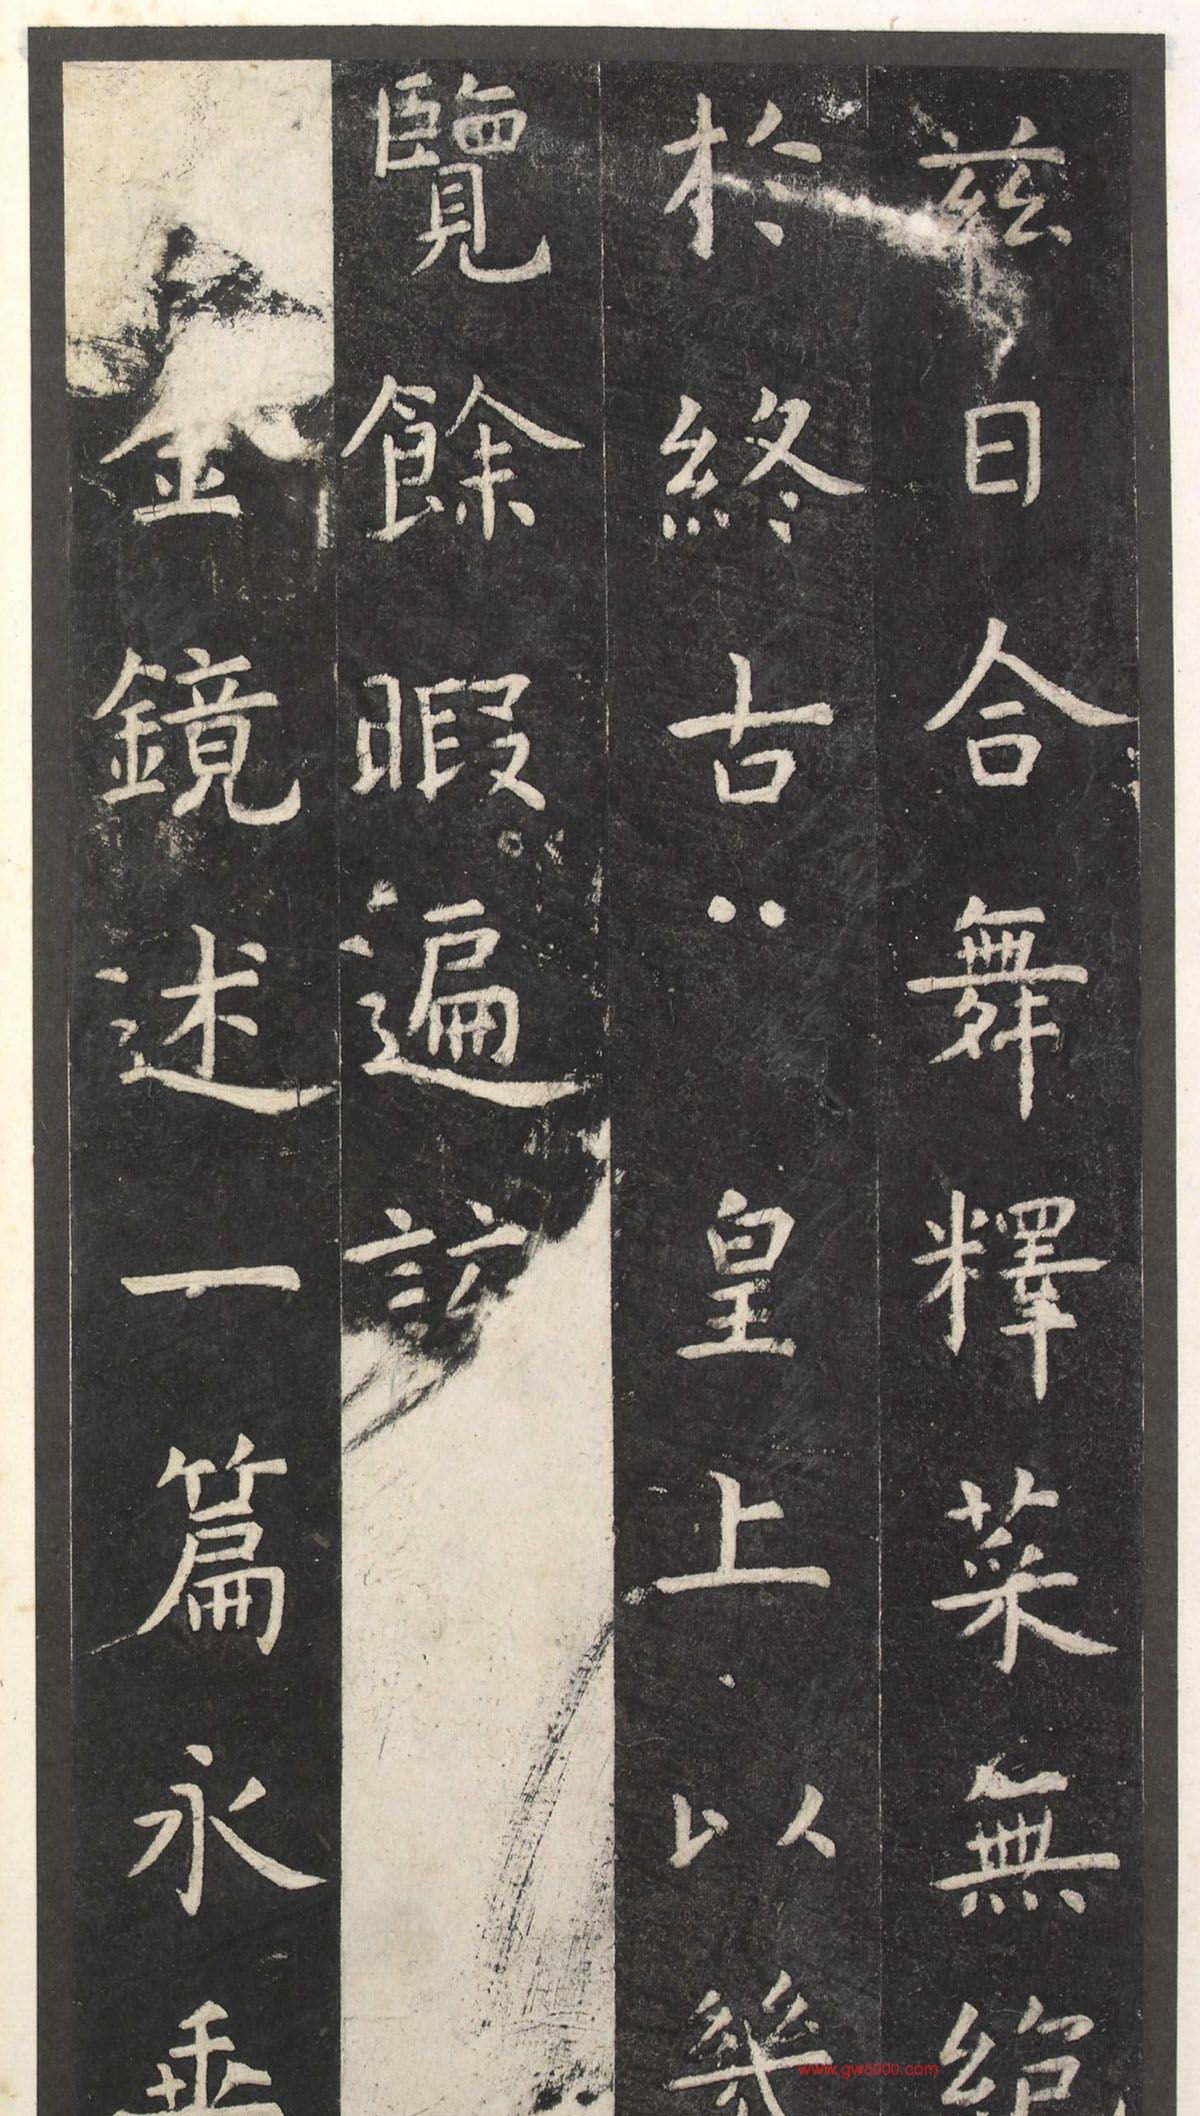 茲日合舞釋菜無絕
於終古皇上以幾
覽餘暇遍訪
金鏡述一篇永垂
www.gw5000.com